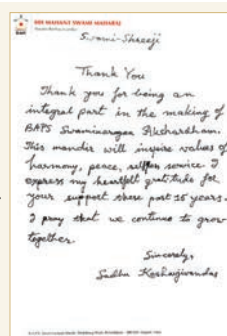 HH MAHANT SWAMI MAHARAJ
Swami-Shreeji
Thank You
Thank you for being an
integral part in the making of
BAPS Swaminarayan Akshardham.
This mandir will inspire values of
harmony, peace, selfless service. I
express my heartfelt gratitude for
your support these past 15 years.
I pray that we continue to grow
together.
Sincerely,
Sadhu Keshavjivandas